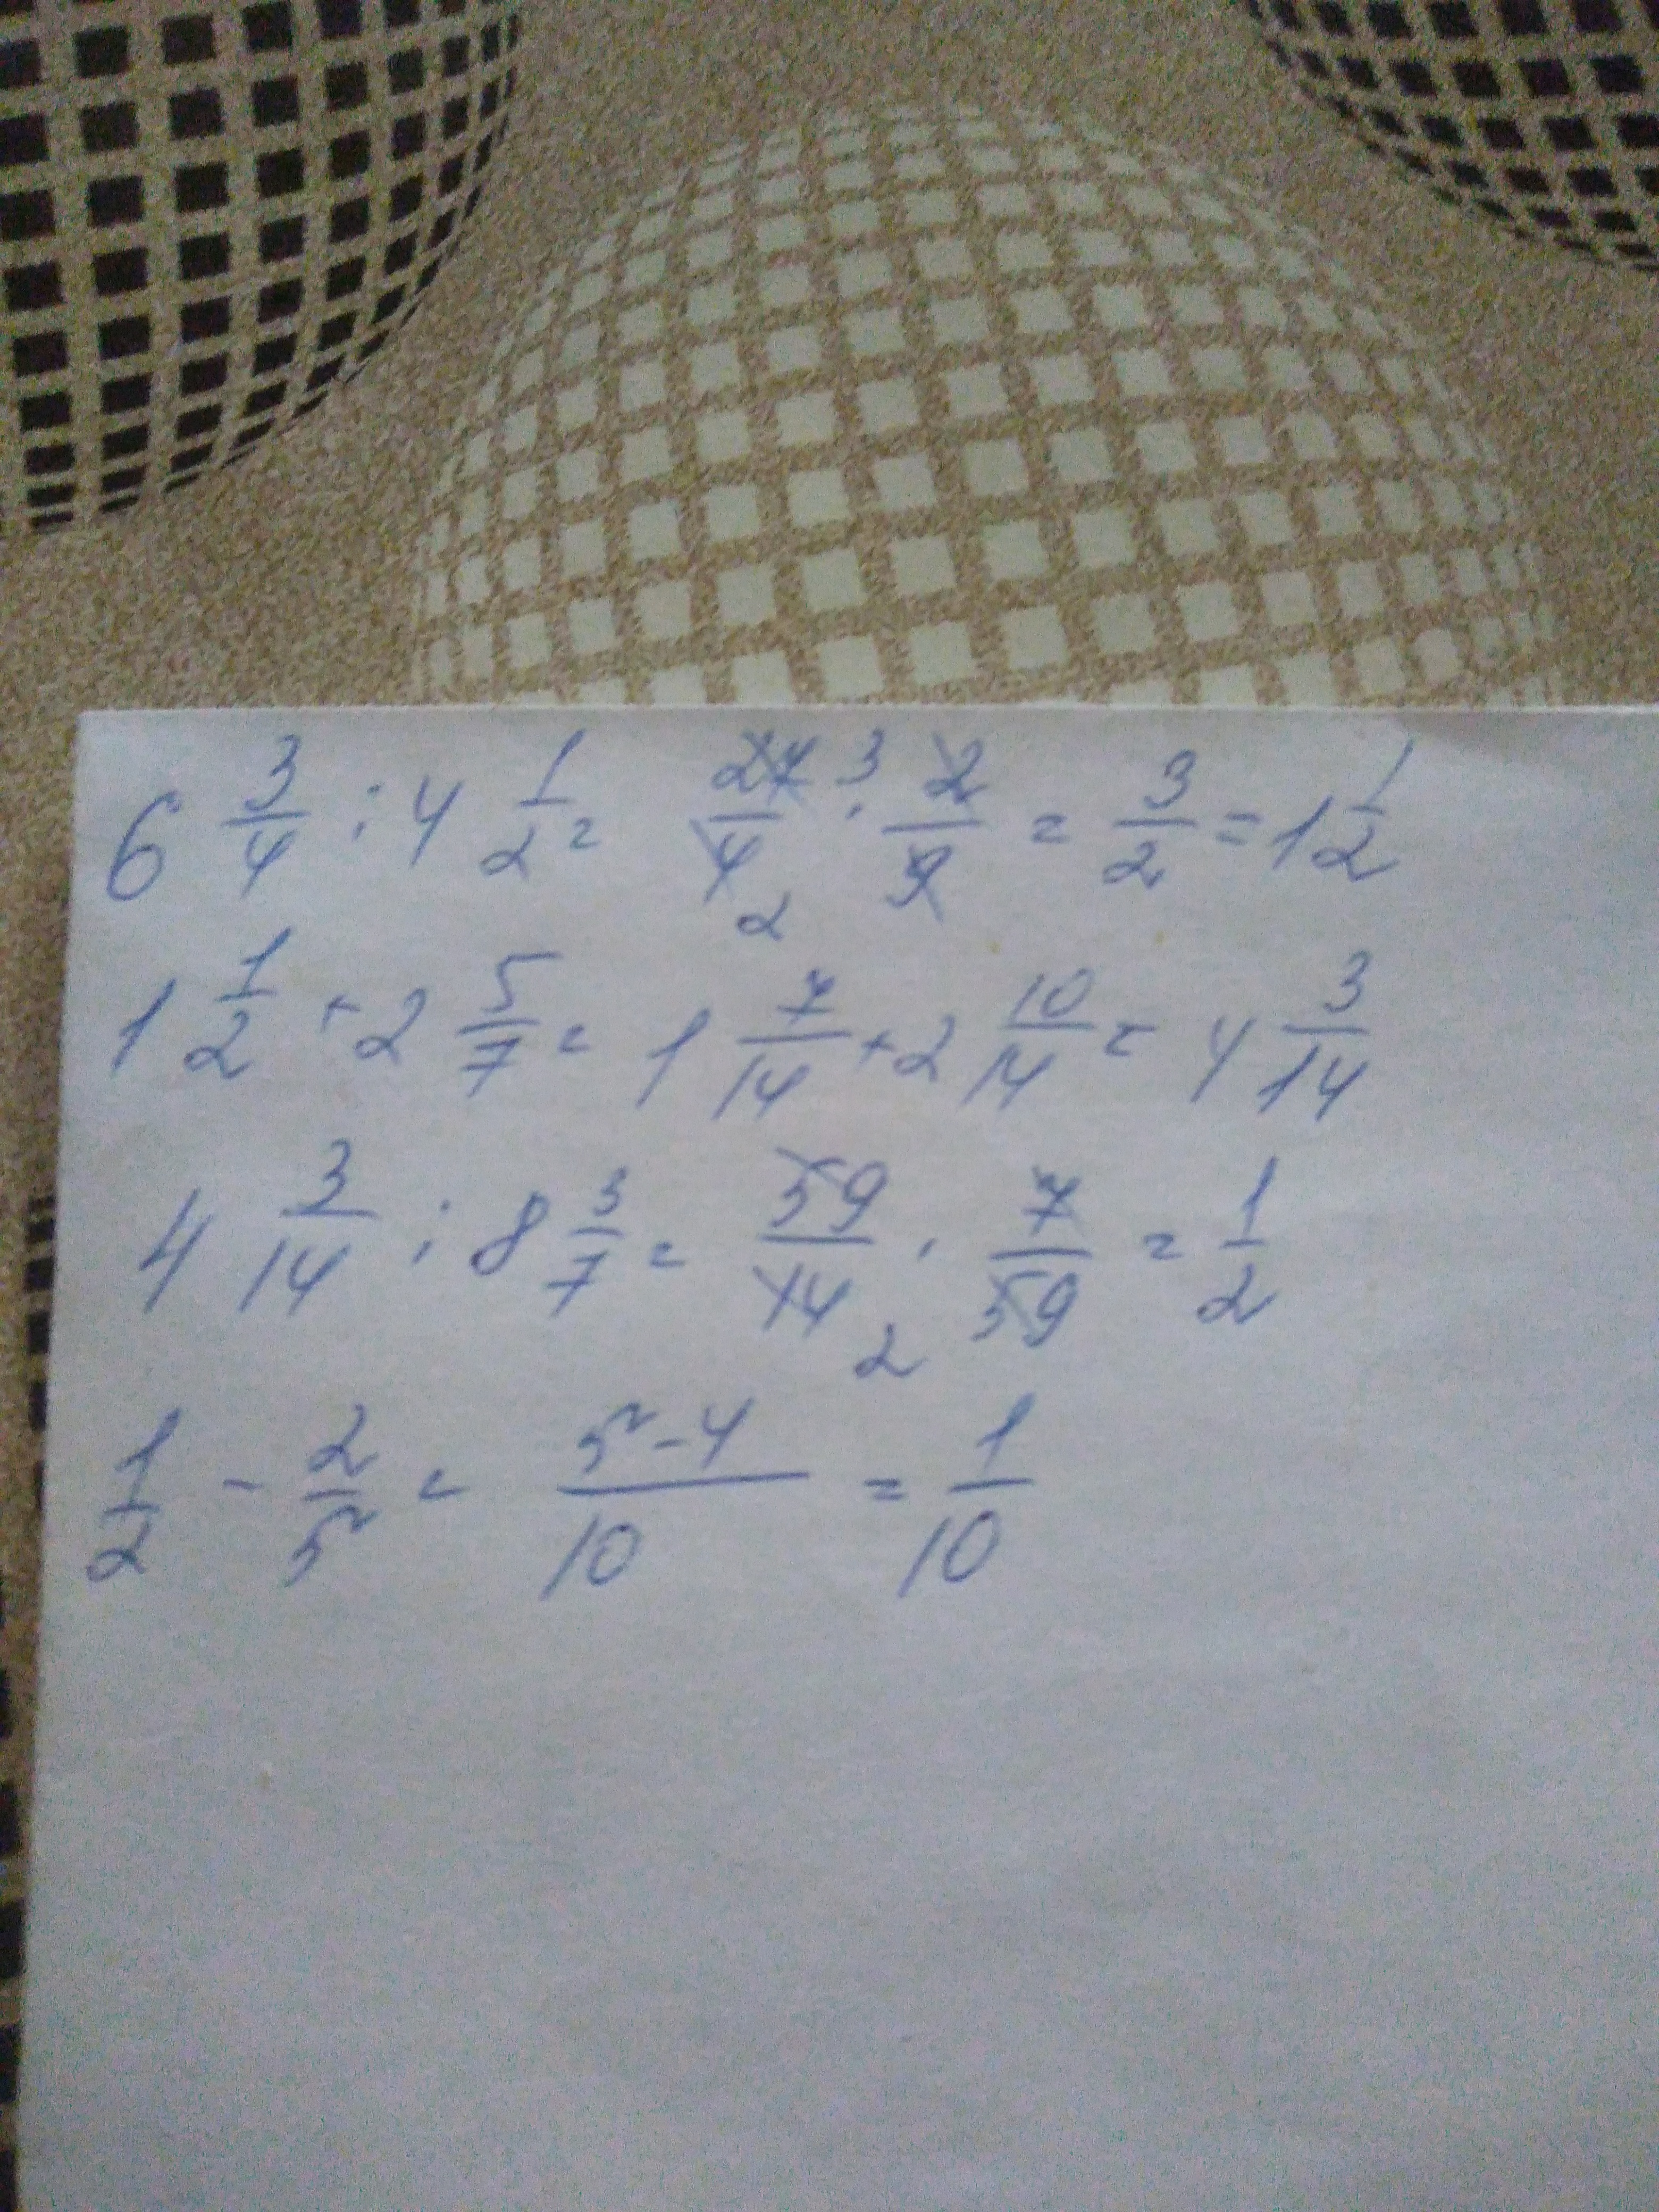 6 3/4 : 4 1/2 = 27/4 3/2 · 2/9 = 3/2 = 1 1/2
1 1/2 + 2 5/7 = 1 7/14 + 2 10/14 = 4 3/14
4 3/14 : 8 3/7 = 59/14 2 · 7/59 = 1/2
1/2 - 2/5 = 5-4/10 = 1/10